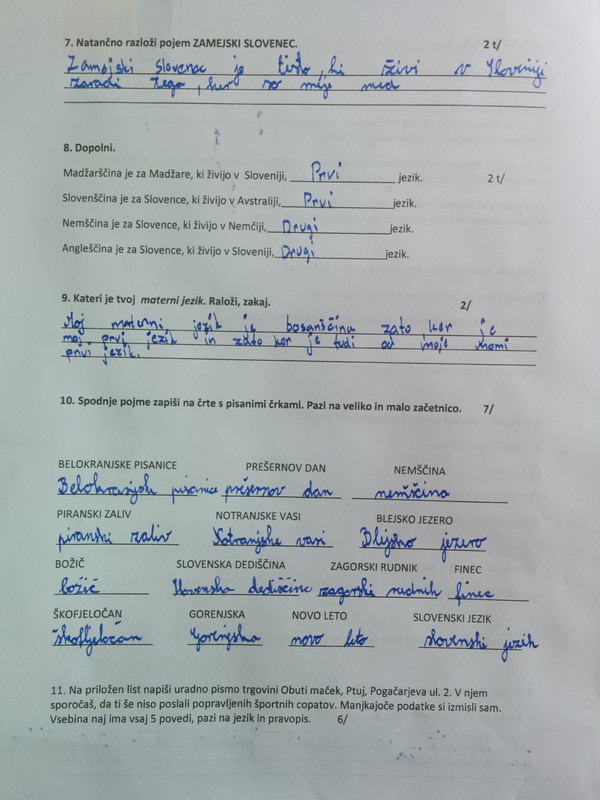 7. Natančno razloži pojem ZAMEJSKI SLOVENEC. 2 t/
Zamejski slovenec je tisto, ki živi v Sloveniji
zaradi tega, ker so meje med
8. Dopolni.
Madžarščina je za Madžare, ki živijo v Sloveniji, Prvi jezik. 2 t/
Slovenščina je za Slovence, ki živijo v Avstraliji, Prvi jezik.
Nemščina je za Slovence, ki živijo v Nemčiji, Drugi jezik.
Angleščina je za Slovence, ki živijo v Sloveniji, Drugi jezik.
9. Kateri je tvoj materni jezik. Raloži, zakaj. 2/
Moj materni jezik je bosanščina zato ker je
moj prvi jezik in zato ker je tudi od moje mami
prvi jezik.
10. Spodnje pojme zapiši na črte s pisanimi črkami. Pazi na veliko in malo začetnico. 7/
BELOKRANJSKE PISANICE PREŠERNOV DAN NEMŠČINA
pisanice prešernov dan nemščina
PIRANSKI ZALIV NOTRANJSKE VASI BLEJSKO JEZERO
piranski zaliv Notranjske vasi Blejsko jezero
BOŽIČ SLOVENSKA DEDIŠČINA ZAGORSKI RUDNIK FINEC
božič Slovenska dediščine zagorski rudnik finec
ŠKOFJELOČAN GORENJSKA NOVO LETO SLOVENSKI JEZIK
škofjeločan Gorenjska novo leto slovenski jezik
11. Na priložen list napiši uradno pismo trgovini Obuti maček, Ptuj, Pogačarjeva ul. 2. V njem
sporočaš, da ti še niso poslali popravljenih športnih copatov. Manjkajoče podatke si izmisli sam.
Vsebina naj ima vsaj 5 povedi, pazi na jezik in pravopis. 6/